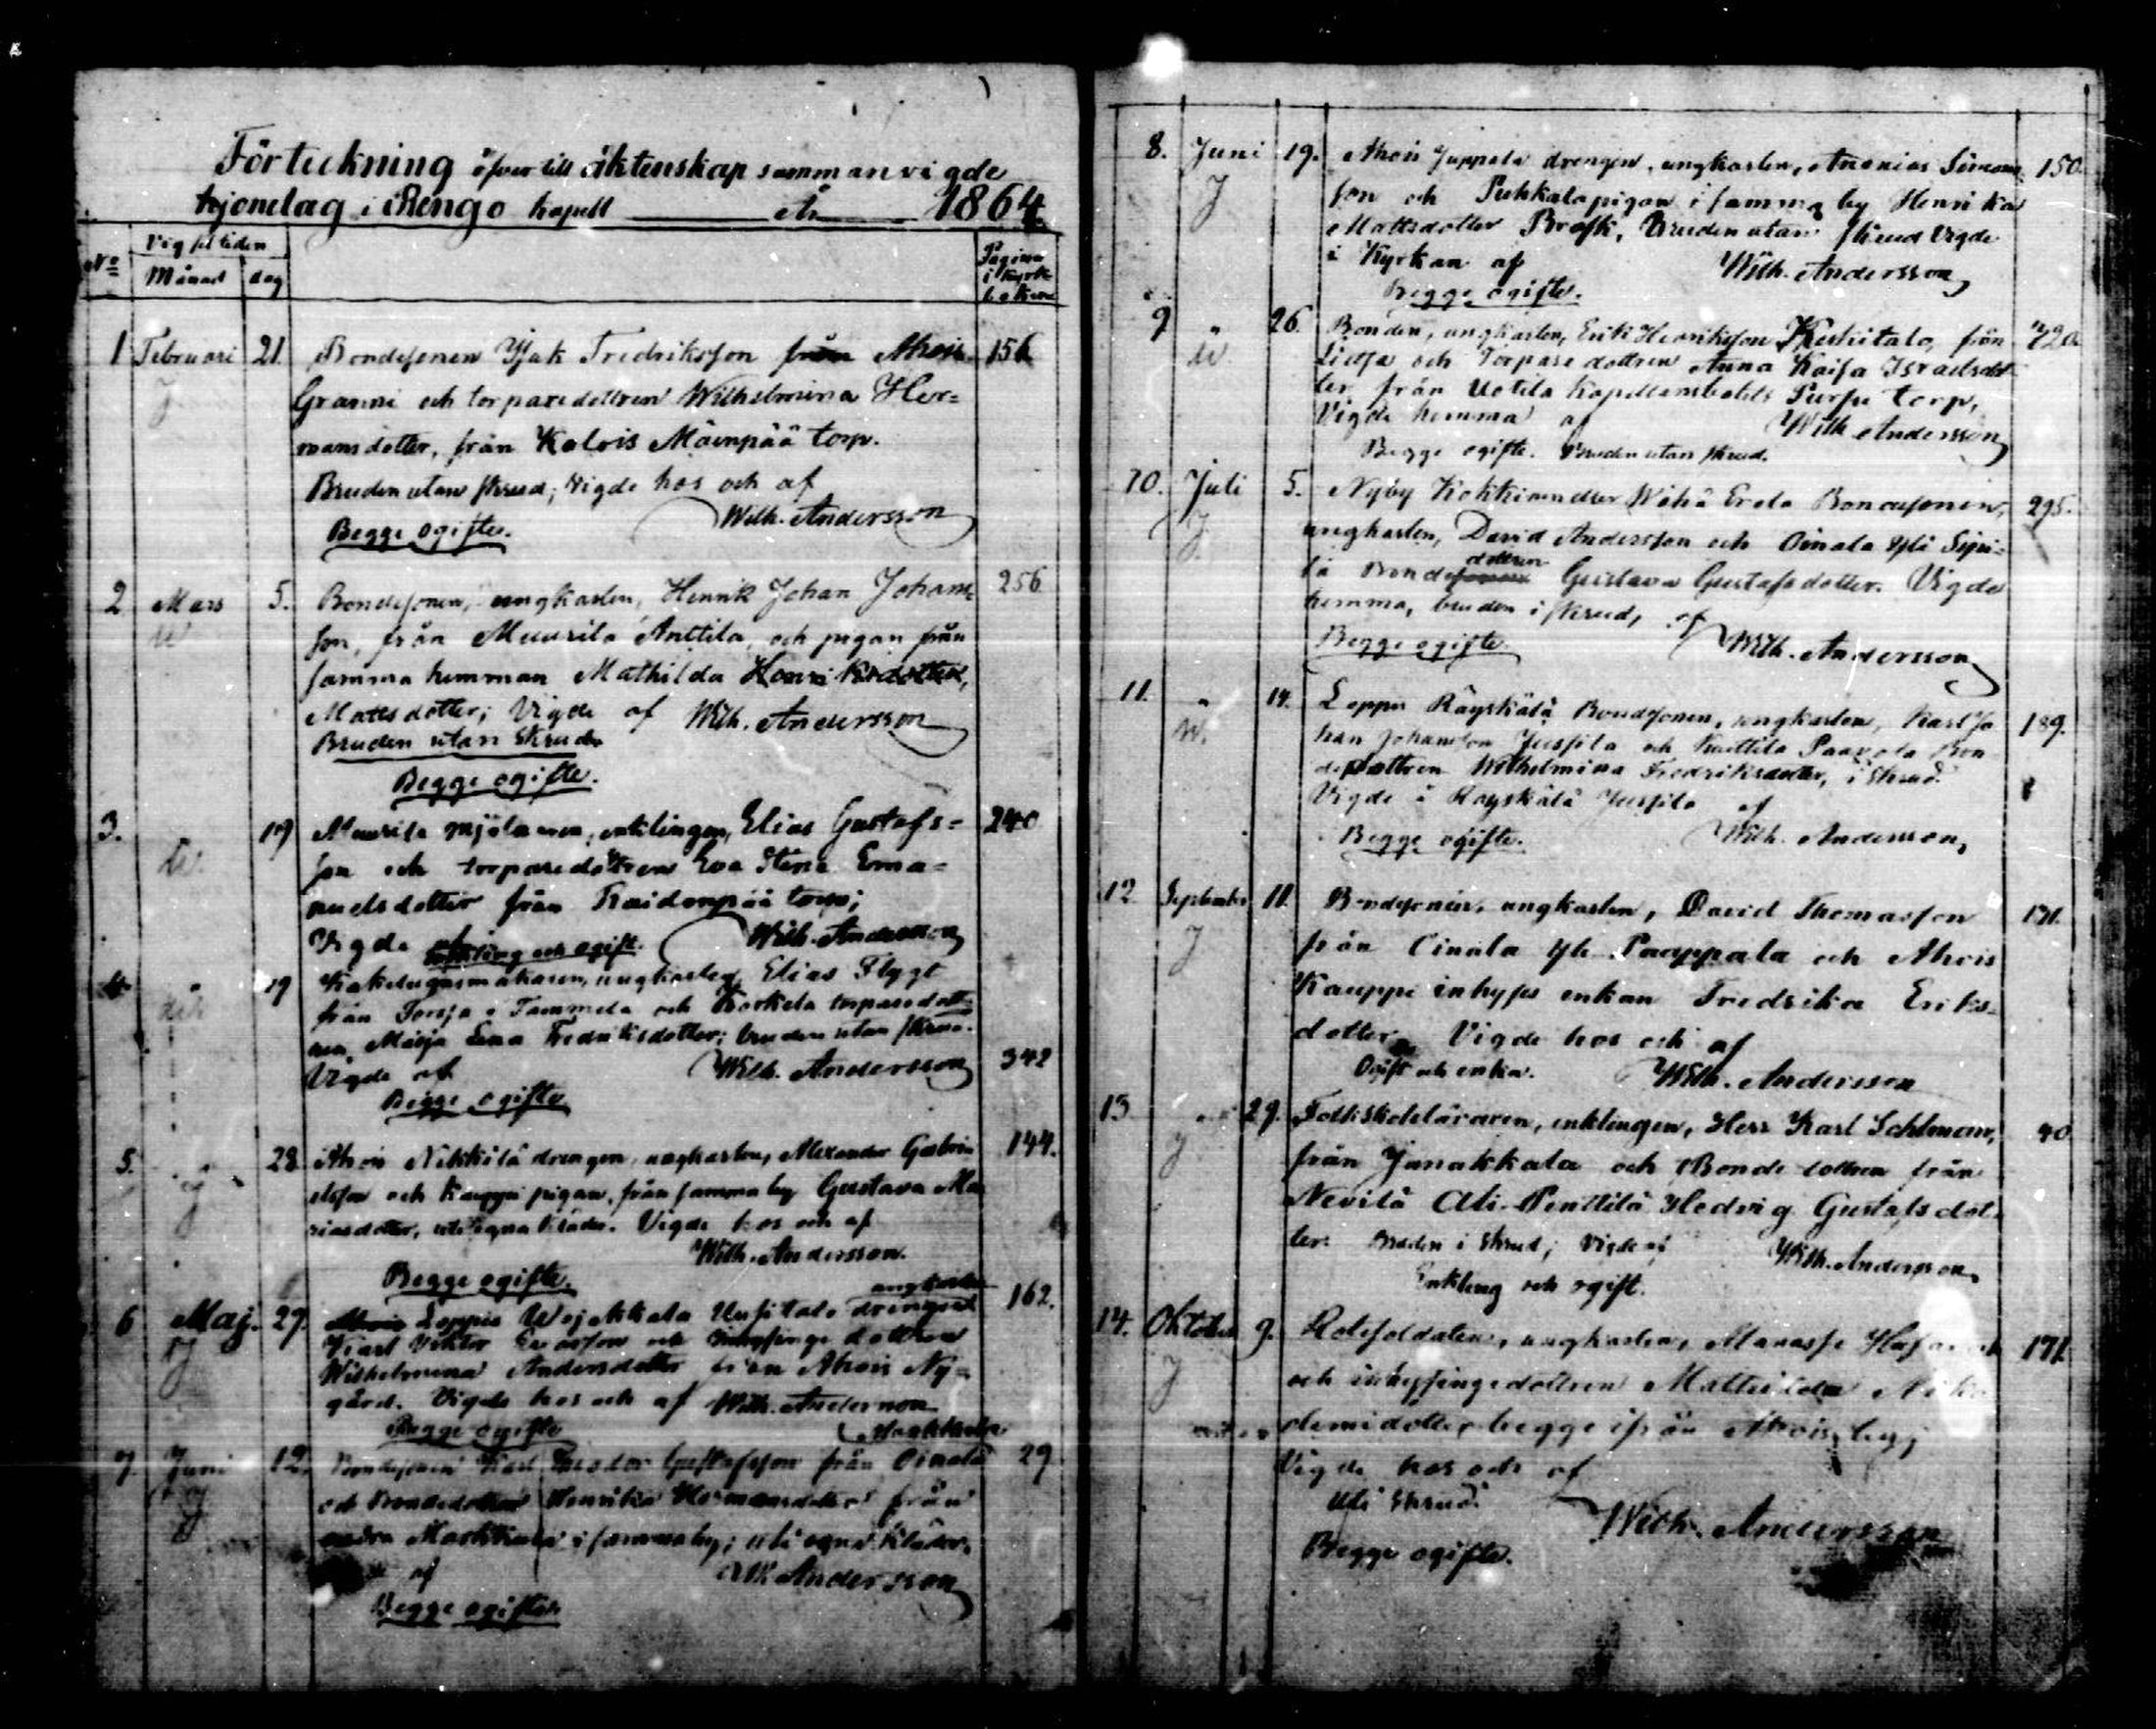 Förteckning öfver till äktenskap sammanvigde
hjonelag i Rengo kapell år 1864
No Vigseltiden Pagina i kyrkoboken
Månad dag
1 Februari 21. Bondesonen Isak Fredriksson från Ahois 156
J Granni och torparedottren Wilhelmina Her=
mansdotter, från Kalois Mäenpää torp.
Bruden utan skrud; Vigde hos och af
Wilh. Andersson
Begge ogifte.
2 Mars 5. Bondesonen, ungkarlen, Henrik Johan Johans= 256
W son, från Muurila Anttila, och pigan från
samma hemman Mathilda Henriksdotter,
Mattsdotter; Vigde af Wilh. Andersson
Bruden utan skrud
Begge ogifte.
3. 19 Muurila mjölnaren, enklingen, Elias Gustafs= 240
W. son och torparedottren Eva Stina Ema=
nuelsdotter från torp;
Vigde af Wilh. Andersson
Enkling och ogift.
4 19 Kakelugnsmakaren, ungkarlen, Elias Flygt
från Forssa i Tammela och Korkela torparedott=
ren, Maija Lena Fredriksdotter; bruden utan skrud.
Vigde af Wilh. Andersson 342
Begge ogifte
5. 28 Ahois Nikkilä drengen, ungkarlen, Alexander Gabri= 144.
J elsson och Kauppi pigan, från samma by Gustava Ma
riasdotter, uti egna kläder. Vigde hos och af
Wilh. Andersson.
Begge ogifte.
ungkarlen
6 Maj. 29. Ahois Loppis Wojakkala Uusitalo drengen 162.
J Karl Viktor och inhysinge dottren
Wilhelmina Andersdotter från Ahois Ny=
gård. Vigde hos och af Wilh. Andersson
Begge ogifte
Markkula
7 Juni 12. Bondesonen Karl Theodor Gustafsson från Oinala 29
J och Bondedottren Henrika Hermansdotter från
andra Markkula i samma by; uti egna kläder.
af Wilh Andersson
Begge ogifte
8. Juni 19. Ahois Juppala drengen, ungkarlen, Ananias Simons 150.
J son och Pukkalapigan i samma by Henrika
Mattsdotter Brask, Bruden utan skrud Vigde
i Kyrkan af Wilh. Andersson
Begge ogifte.
9 " 26. Bonden, ungkarlen, Erik Henriksson Keskitalo, från 220.
W och Torparedottren Anna Kaisa Israelsdot
ter från Uotila Kapellansbolets torp,
Vigde hemma af Wilh Andersson
Begge ogifte. Bruden utan skrud.
10. Juli 5. Nyby Bondesonen, 295.
J. ungkarlen, David Andersson och Oinala Yli Sipi=
dottren
lä Bondesonen Gustava Gustafsdotter. Vigde
hemma, bruden i skrud, af
Begge ogifte. Wilh. Andersson
11. " 14. Loppis Räyskälä Bondesonen, ungkarlen, Karl Jo 189.
W. han Johansson Jussila och Kuittila Paavola Bon
dedottren Wilhelmina Fredriksdotter, i skrud
Vigde i Räyskälä Jussila af
Begge ogifte. Wilh. Andersson,
12 September 11. Bondesonen, ungkarlen, David Thomasson 171.
J från Oinala Yli Paappala och Ahois
Kauppi inhyses enkan Fredrika Eriks=
dotter. Vigde hos och af
Ogift och enka. Wilh. Andersson
13 " 29. Folkskoleläraren, enklingen, Herr Karl Sahlman, 40
J från Janakkala och Bonde dottren från
Nevilä Ali-Penttilä Hedvig Gustafsdot=
ter. Bruden i skrud; Vigde af Wilh. Andersson
Enkling och ogift.
14. Oktober 9. Rotesoldaten, ungkarlen, Manasse 171.
J och inhysingedottren Mathilda Niko
demidotter begge ifrån Ahois by;
Vigde hos och af
Uti skrud. Wilh. Andersson
Begge ogifte.